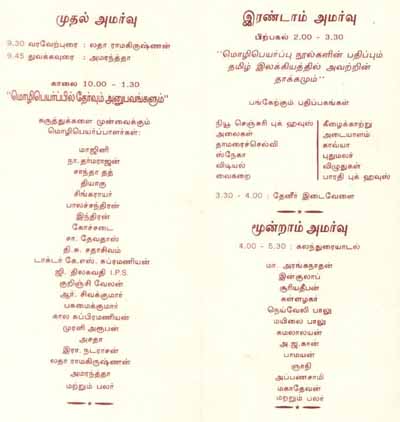 முதல் அமர்வு
9.30 வரவேற்புரை : லதா ராமகிருஷ்ணன்
9.45 துவக்கவுரை : அமரந்த்தா
காலை 10.00 - 1.30
"மொழிபெயர்ப்பில் தேர்வும் அனுபவங்களும்"
கருத்துக்களை முன்வைக்கும்
மொழிபெயர்ப்பாளர்கள்:
மாஜினி
நா. தர்மராஜன்
சாந்தா தத்
தியாகு
சிங்கராயர்
பாலச்சந்திரன்
இந்திரன்
கோச்சடை
சா. தேவதாஸ்
தி.சு. சதாசிவம்
டாக்டர் கே.எஸ். சுப்ரமணியன்
ஜி. திலகவதி I.P.S.
குறிஞ்சி வேலன்
ஆர். சிவக்குமார்
பசுமைக்குமார்
கால சுப்பிரமணியன்
முரளி அரூபன்
அசதா
இரா. நடராசன்
லதா ராமகிருஷ்ணன்
அமரந்த்தா
மற்றும் பலர்
இரண்டாம் அமர்வு
பிற்பகல் 2.00 - 3.30
"மொழிபெயர்ப்பு நூல்களின் பதிப்பும்
தமிழ் இலக்கியத்தில் அவற்றின்
தாக்கமும்"
பங்கேற்கும் பதிப்பகங்கள்
நியூ செஞ்சுரி புக் ஹவுஸ்
அலைகள்
தாமரைச்செல்வி
ஸ்நேகா
விடியல்
வைகறை
கீழைக்காற்று
அடையாளம்
காவ்யா
புதுமலர்
விழுதுகள்
பாரதி புக் ஹவுஸ்
3.30 - 4.00 : தேனீர் இடைவேளை
மூன்றாம் அமர்வு
4.00 - 5.30 : கலந்துரையாடல்
மா. அரங்கநாதன்
இன்குலாப்
சூரியதீபன்
கள்ளழகர்
நெய்வேலி பாலு
மயிலை பாலு
கமலாலயன்
அ.ஜ.கான்
பாமயன்
ஞாநி
அப்பணசாமி
மகாதேவன்
மற்றும் பலர்